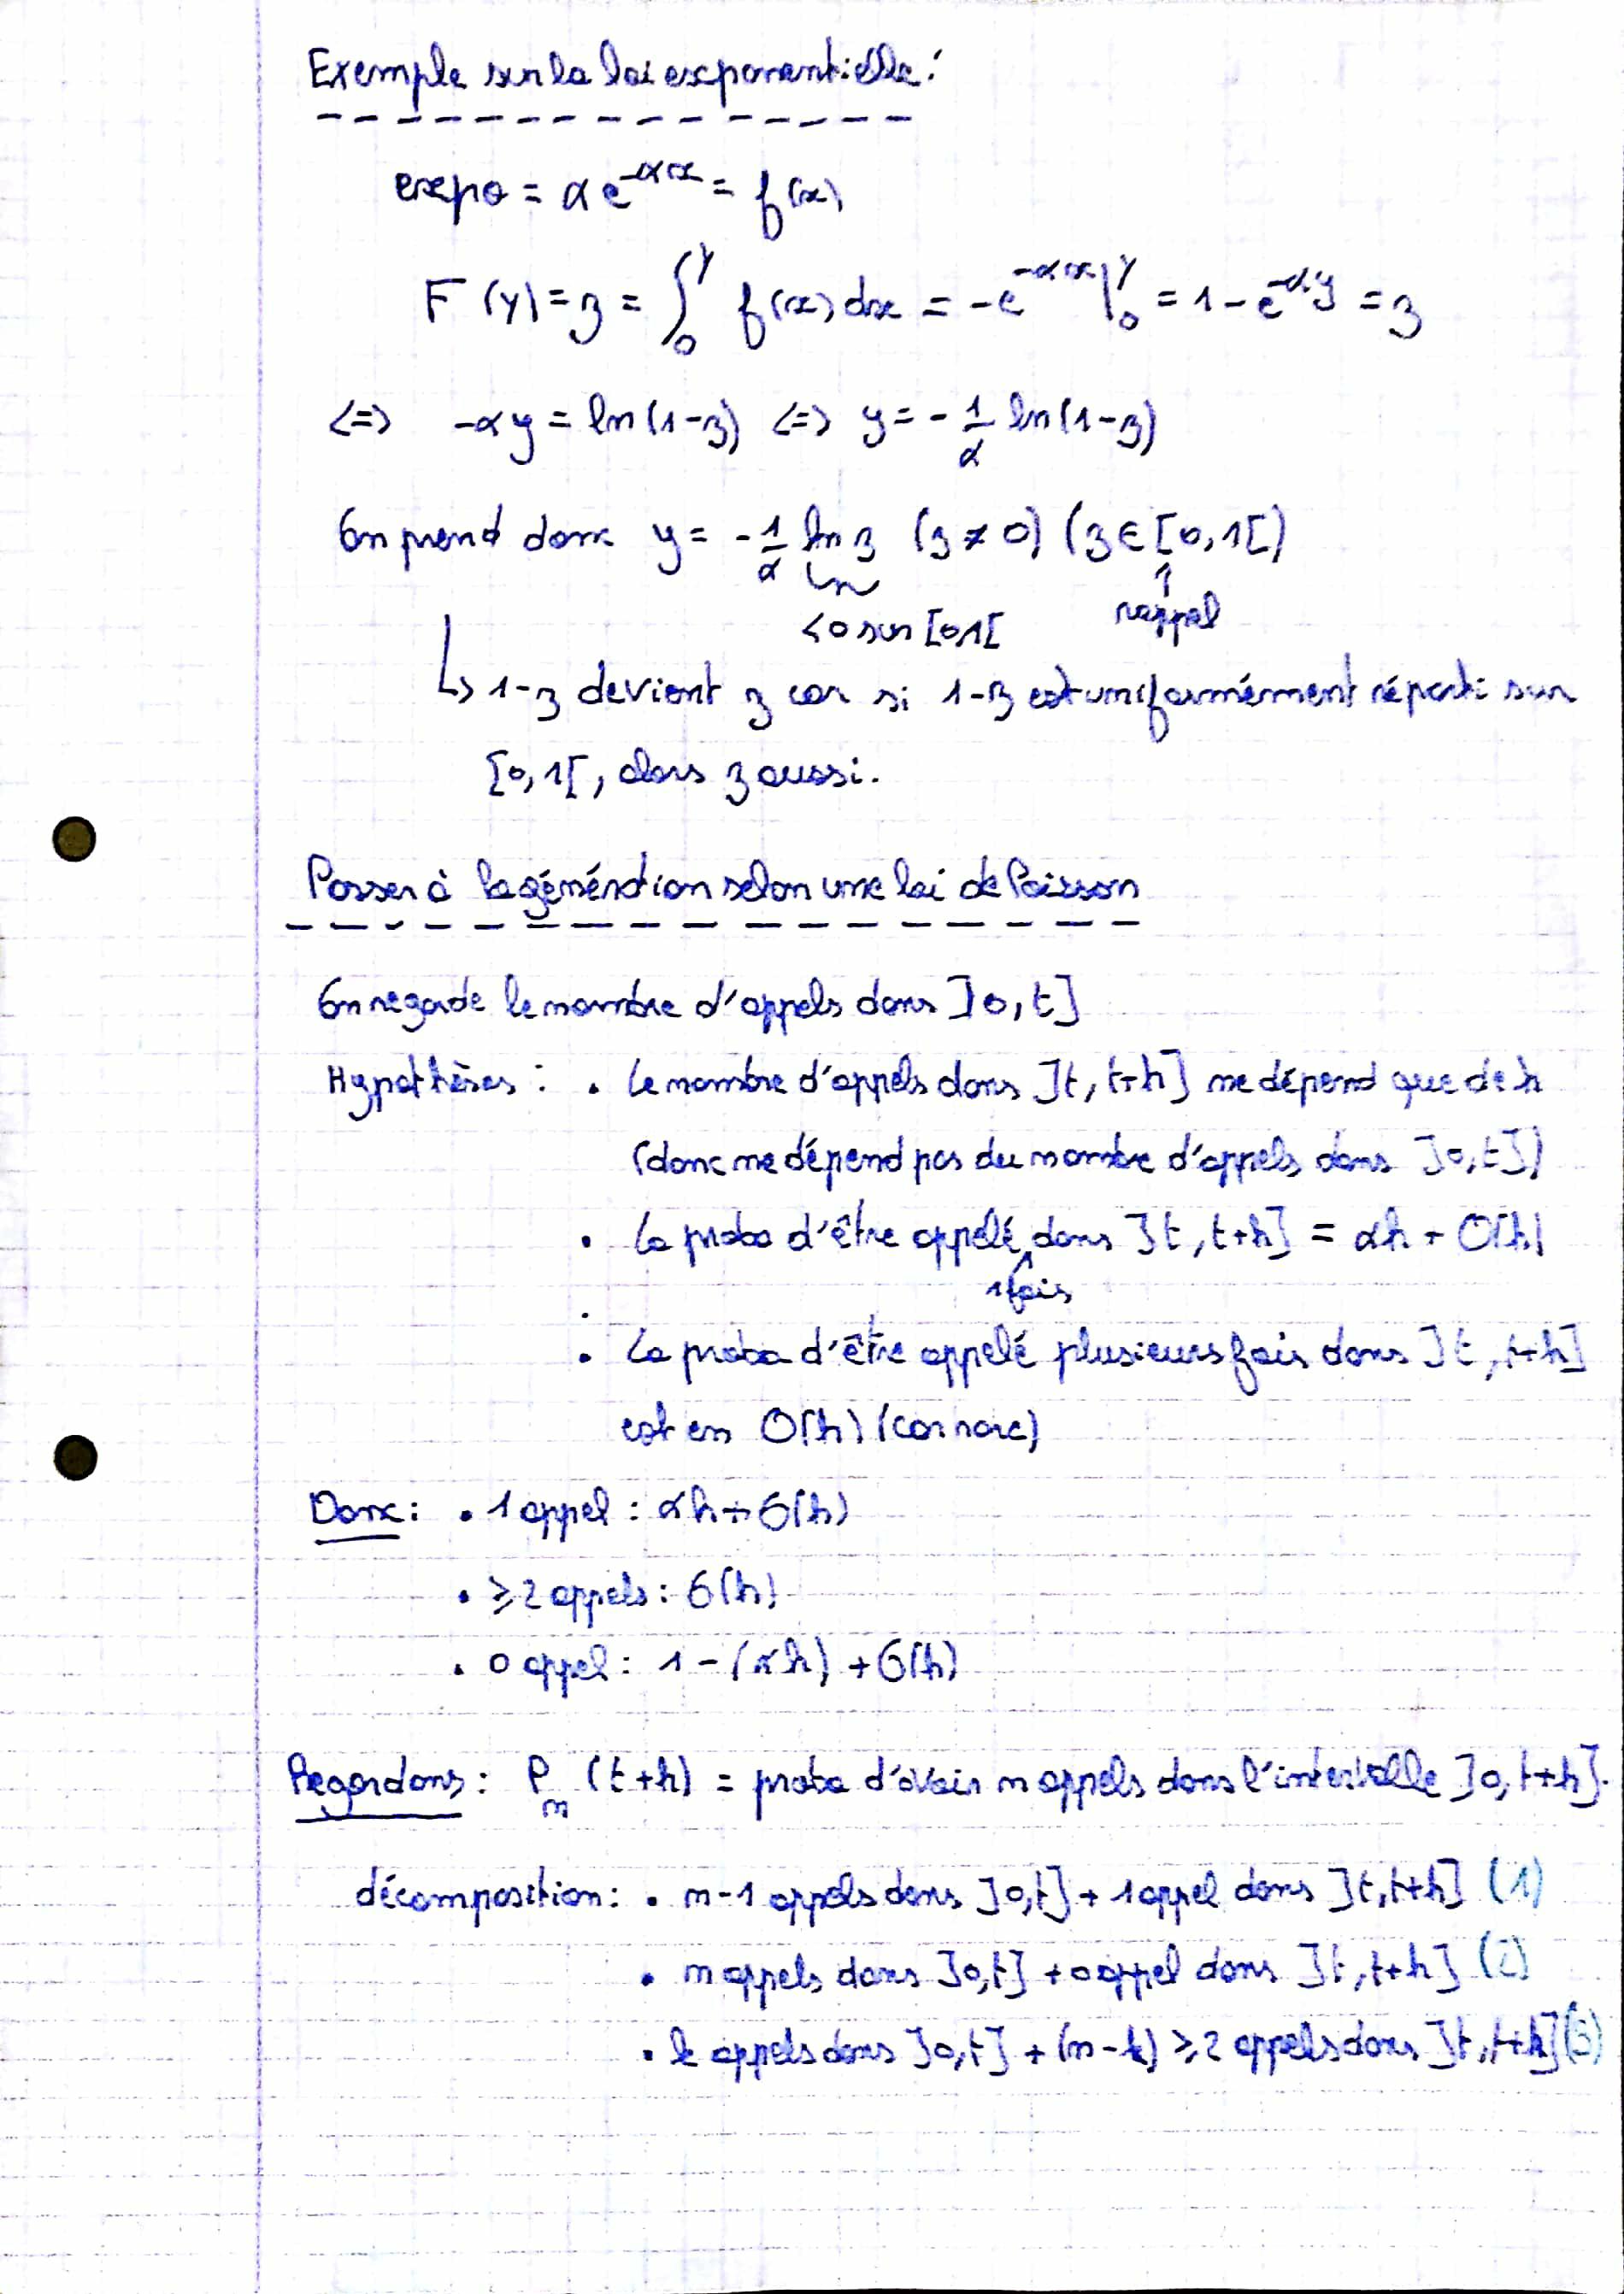 Exemple sur la loi exponentielle :
expo = α e^{-αx} = f(x)
F(y) = z = ∫_0^y f(x) dx = -e^{-αx} |_0^y = 1 - e^{-αy} = z
<=> -αy = ln(1-z) <=> y = - 1/α ln(1-z)
On prend donc y = - 1/α ln z (z ≠ 0) (z ∈ [0,1[)
<0 sur [0,1[ ↑ rappel
↳ 1-z devient z car si 1-z est uniformément réparti sur
[0,1[, alors z aussi.
Passer à la génération selon une loi de Poisson
On regarde le nombre d'appels dans ]0,t]
Hypothèses : • Le nombre d'appels dans ]t, t+h] ne dépend que de h
(donc ne dépend pas du nombre d'appels dans ]0,t])
• La proba d'être appelé dans ]t, t+h] = αh + O(h)
1 fois
• La proba d'être appelé plusieurs fois dans ]t, t+h]
est en O(h) (car rare)
Donc : • 1 appel : αh + O(h)
• ≥2 appels : O(h)
• 0 appel : 1 - (αh) + O(h)
Regardons : P_n (t+h) = proba d'avoir n appels dans l'intervalle ]0, t+h].
décomposition : • n-1 appels dans ]0,t] + 1 appel dans ]t,t+h] (1)
• n appels dans ]0,t] + 0 appel dans ]t,t+h] (2)
• k appels dans ]0,t] + (n-k) ≥2 appels dans ]t,t+h] (3)